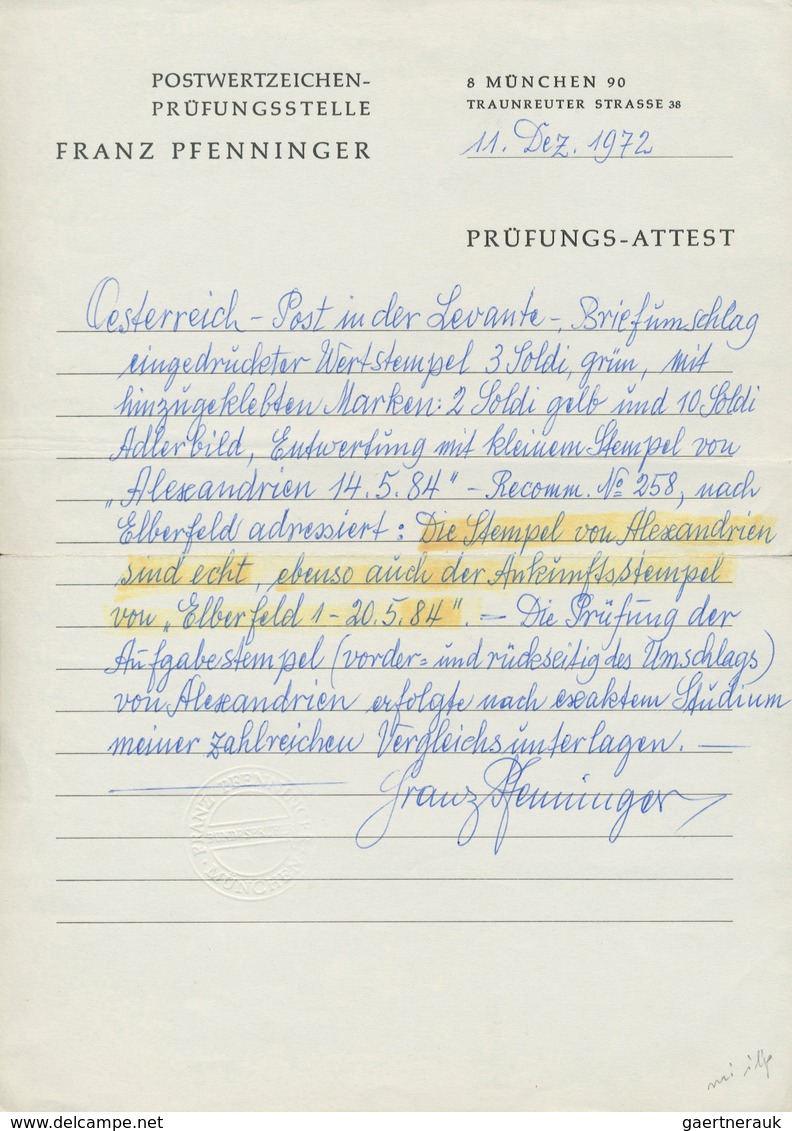 POSTWERTZEICHEN-
PRÜFUNGSSTELLE
FRANZ PFENNINGER
8 MÜNCHEN 90
TRAUNREUTER STRASSE 38
11. Dez. 1972
PRÜFUNGS-ATTEST
Oesterreich - Post in der Levante -, Briefumschlag
eingedruckter Wertstempel 3 Soldi, grün, mit
hinzugeklebten Marken: 2 Soldi gelb und 10 Soldi
Adlerbild, Entwertung mit kleinem Stempel von
„Alexandrien 14.5.84" - Recomm. No 258, nach
Elberfeld adressiert: Die Stempel von Alexandrien
sind echt, ebenso auch der Ankunftsstempel
von „Elberfeld 1 - 20.5.84". — Die Prüfung der
Aufgabestempel (vorder= und rückseitig des Umschlags)
von Alexandrien erfolgte nach exaktem Studium
meiner zahlreichen Vergleichsunterlagen. —
Franz Pfenninger
FRANZ PFENNINGER
BUNDESPRÜFER
MÜNCHEN
www.delcampe.net
gaertnerauk